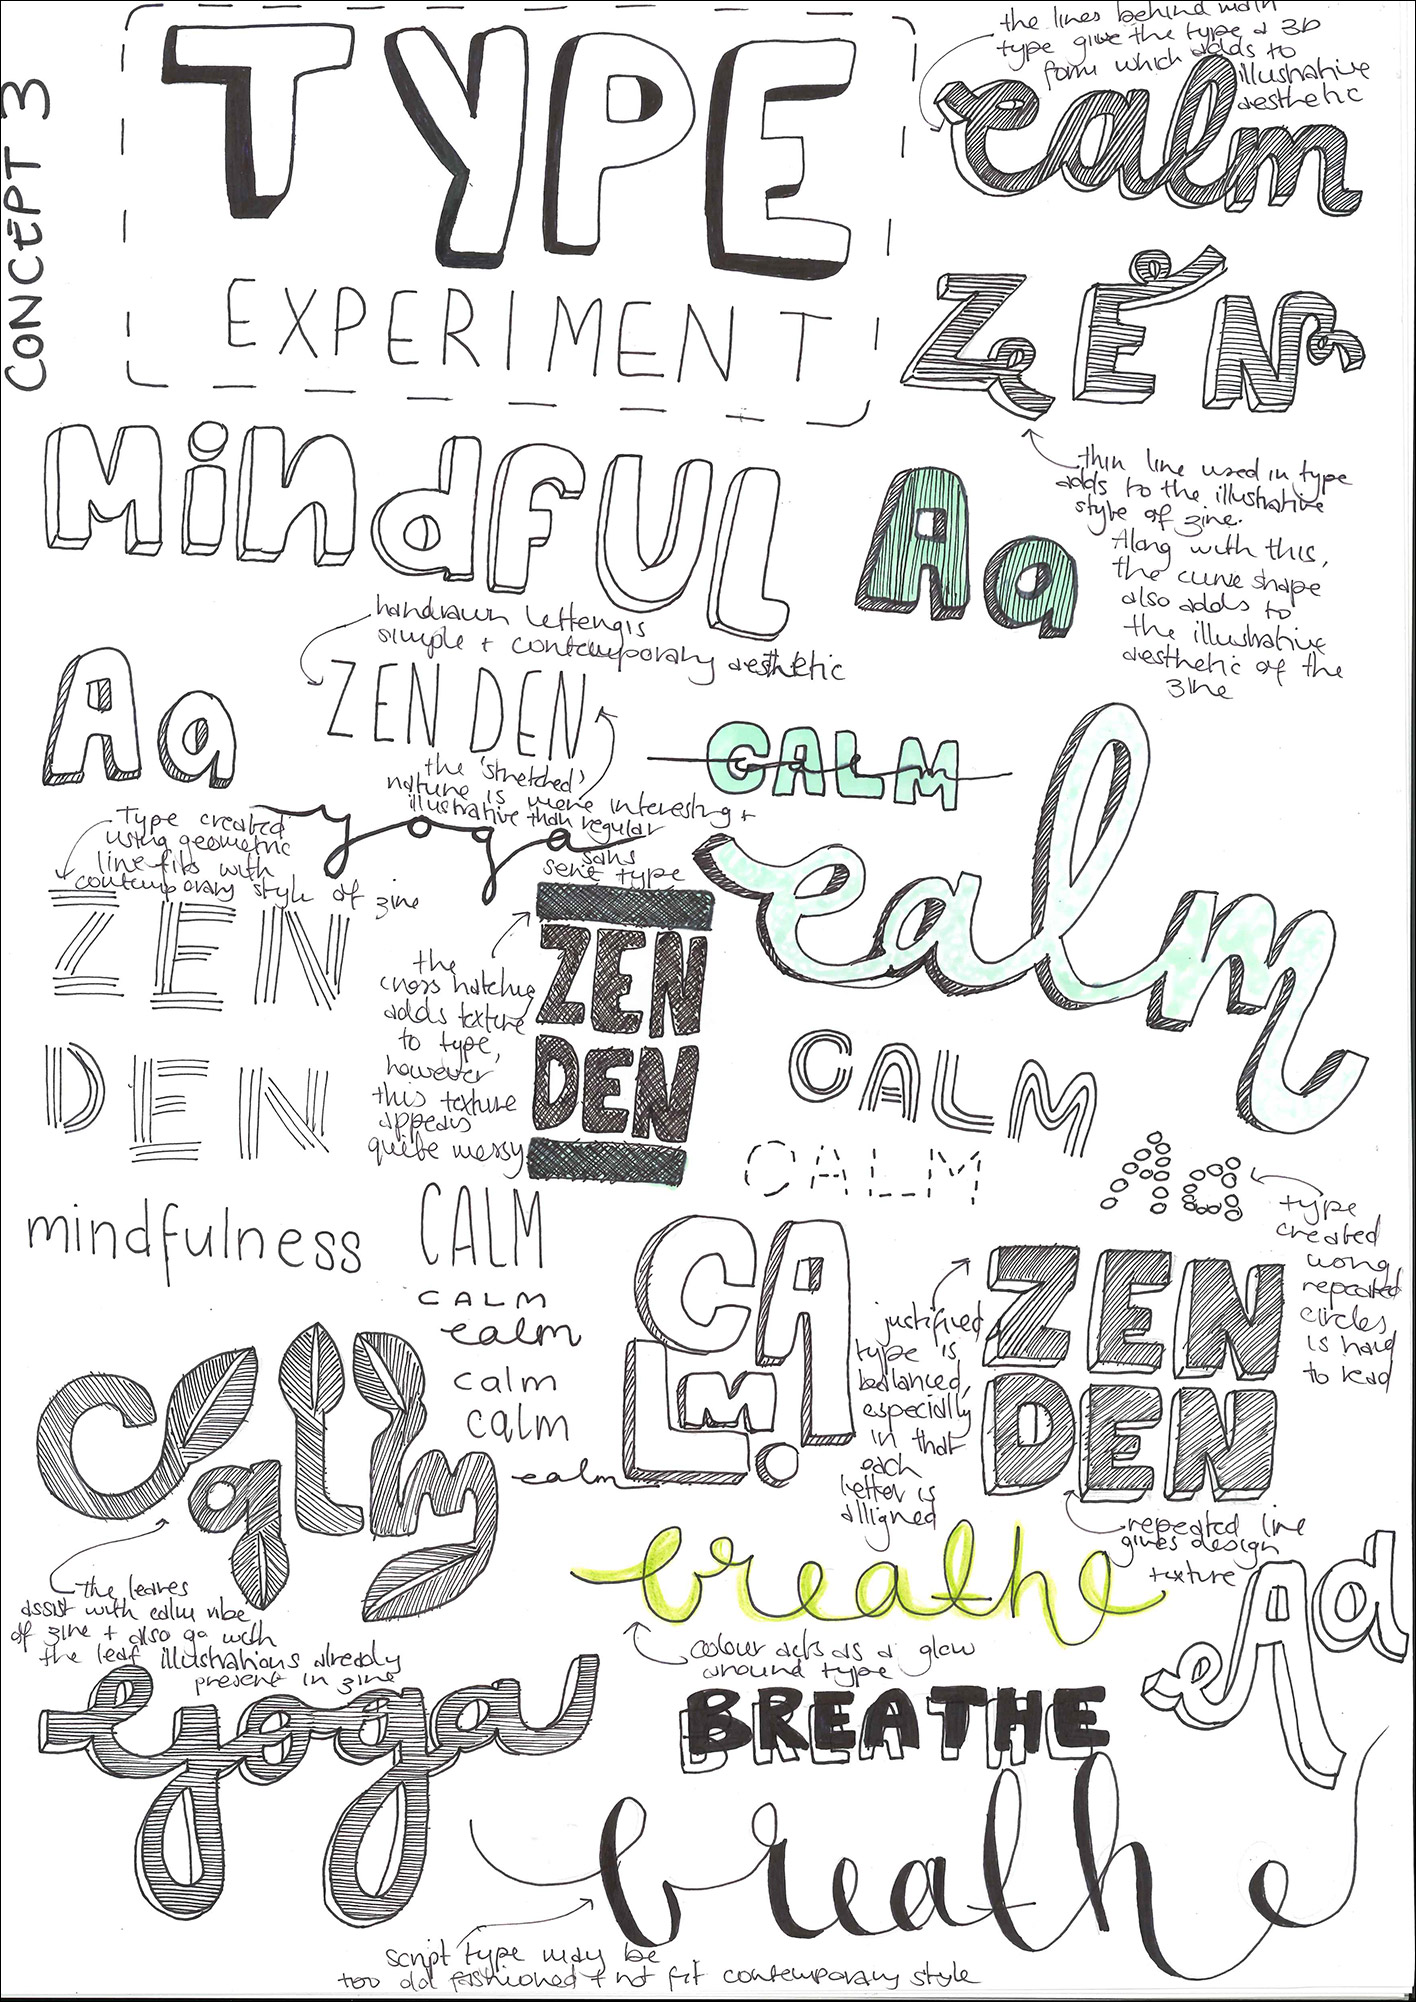 CONCEPT 3
TYPE
EXPERIMENT
the lines behind main
type give the type a 3D
form which adds to
illustrative
aesthetic
calm
ZEN
thin line used in type
adds to the illustrative
style of zine.
Along with this,
the curve shape
also adds to
the illustrative
aesthetic of the
zine
MindFUL
Aa
handrawn lettering is
simple + contemporary aesthetic
ZEN DEN
the 'stretched'
nature is more interesting +
illustrative than regular
sans
serif type
Aa
CALM
calm
Type created
using geometric
line fits with
contemporary style of zine
yoga
ZEN
DEN
the
cross hatching
adds texture
to type,
however
this texture
appears
quite messy
ZEN
DEN
CALM
CALM
Aa
type
created
repeated
circles
is hard
to read
mindfulness
CALM
CALM
calm
calm
calm
calm
CALM.
justified
type is
balanced,
especially
in that
each
letter is
alligned
ZEN
DEN
repeated line
gives design
texture
calm
the leaves
assist with calm vibe
of zine + also go with
the leaf illustrations already
present in zine
breathe
colour acts as a glow
around type
Aa
yoga
BREATHE
breathe
script type may be
too old fashioned + not fit contemporary style